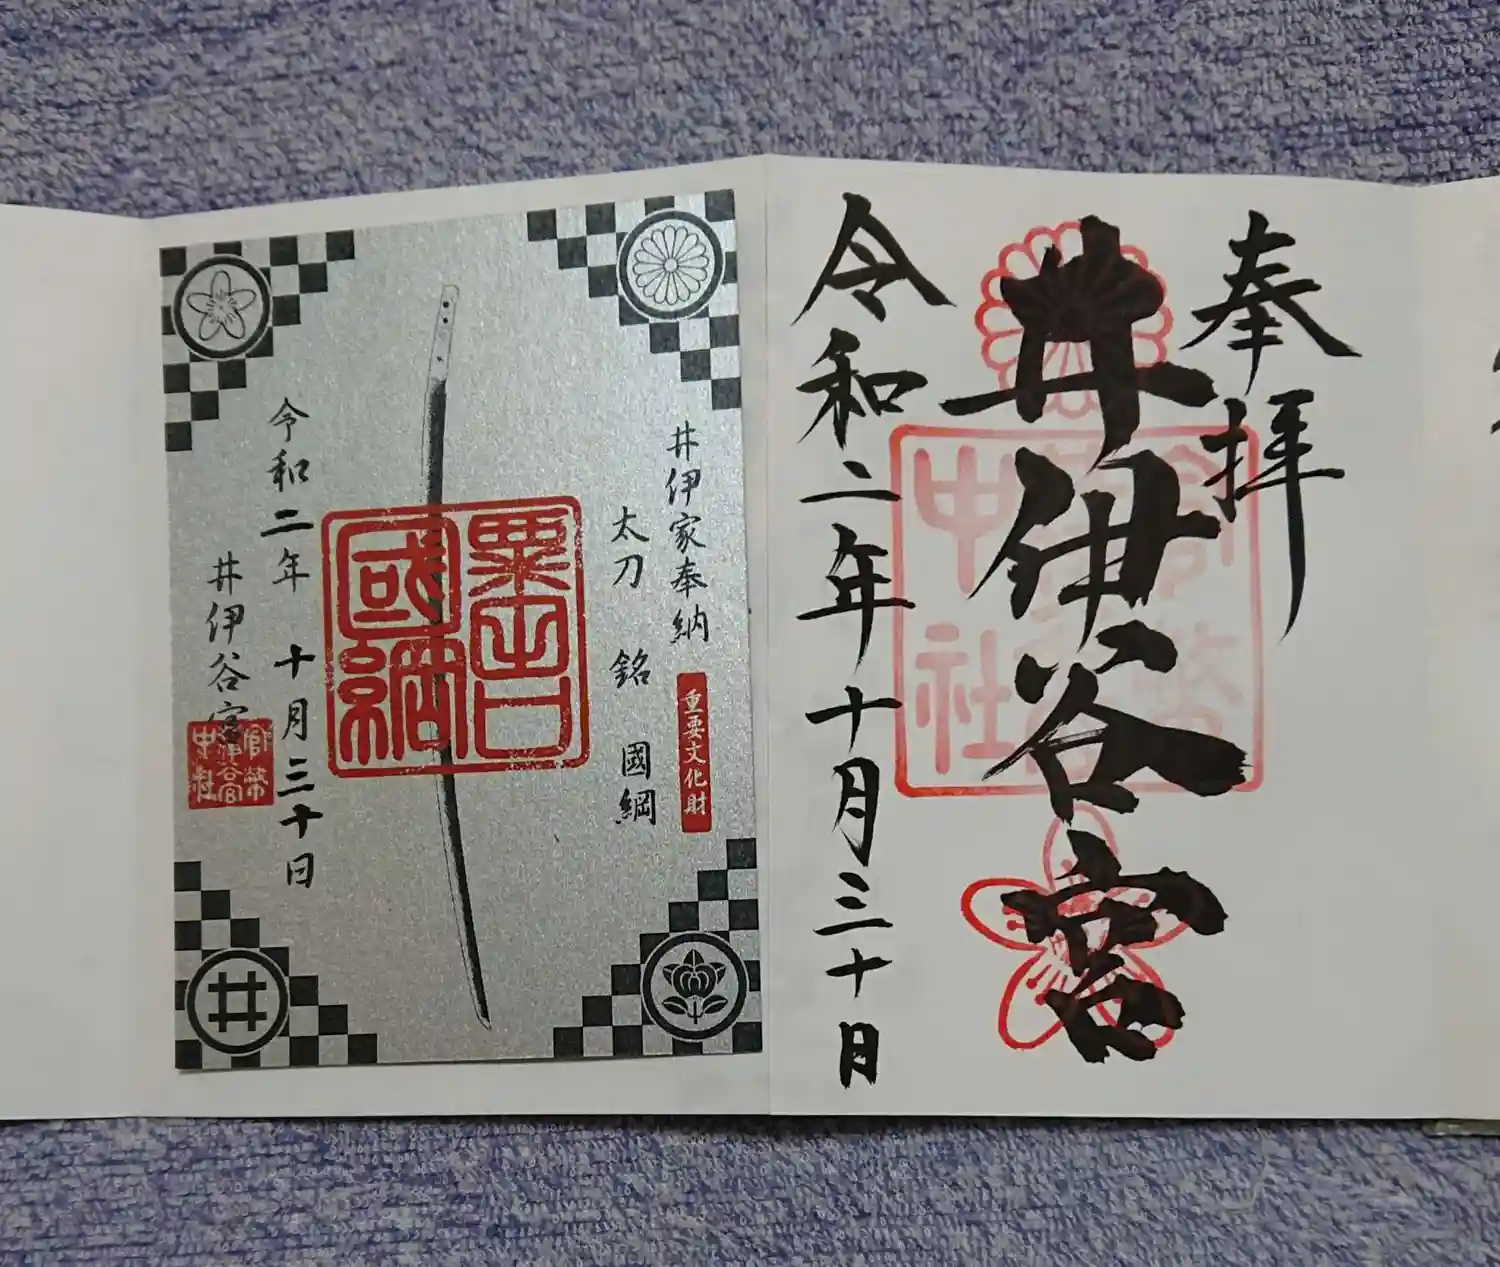 奉拝
井伊谷宮
令和二年十月三十日
井伊家奉納
重要文化財
太刀 銘 國綱
粟田口
國綱
令和二年 十月三十日
井伊谷宮
官幣
井伊谷宮
中社
井